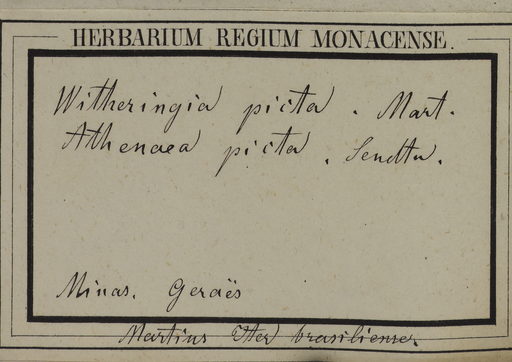 HERBARIUM REGIUM MONACENSE.
Witheringia picta. Mart.
Athenaea picta. Sendtn.
Minas. Geraës
Martius Iter brasiliense.